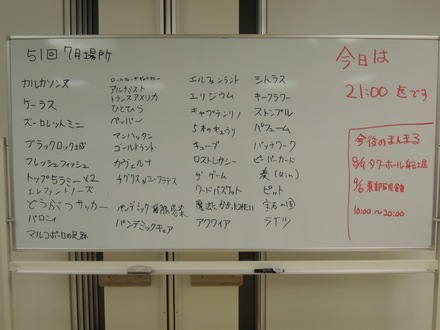 51回 7月場所
カルカソンヌ
ケーラス
ズーロレットミニ
ブラックロック城
フレッシュフィッシュ
トップ5ラミー ×2
エレファントリーズ
どうぶつサッカー
バロニィ
マルコポーロの足跡
アルケミスト
トランスアメリカ
ひとひら
ペッパー
マンハッタン
ゴールドランド
カヴェルナ
チグリス&ユーフラテス
パンデミック
パンデミックキュア
エルフェンランド
エリジウム
キャプテンリノ
5本のきゅうり
キューブ
ロストレガシー
ザ ゲーム
ワードバスケット
魔法にかかったみたい
アクワイア
シトラス
キーフラワー
ストンプル
パフューム
パッチワーク
ビーバーガード
ピット
ライツ
今日は
21:00 迄です
今後のまんまる
8/4 タワーホール船堀
9/6
10:00〜20:00